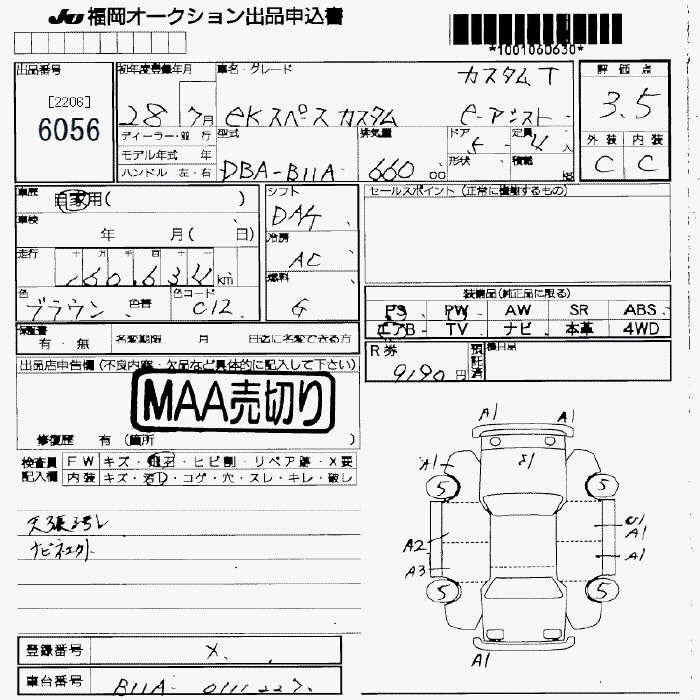 JU 福岡オークション出品申込書
*1001060630*
出品番号
[2206]
6056
初年度登録年月
28 7月
車名・グレード
カスタムT
eKスペース カスタム e-アシスト
ディーラー・並 行
モデル年式 年
ハンドル 左・右
型式
DBA-B11A
排気量
660 cc
ドア
5
定員
4人
形状
積載
kg
評価点
3.5
外装 内装
C C
車歴
自家用( )
車検
年 月( 日)
走行
十 万 千 百 十 一
160,634 km
色
ブラウン
色替
色コード
C12
シフト
DAT
冷房
AC
燃料
G
セールスポイント(正常に機能するもの)
装備品(純正品に限る)
PS PW AW SR ABS
エアB TV ナビ 本革 4WD
R券
9190円
預託済
保証書
有・無
名変期限 月 日迄に名変できる方
出品店申告欄(不良内容、欠品など具体的に記入して下さい)
MAA売切り
修復歴 有(箇所 )
検査員記入欄
FW キズ・飛石・ヒビ割・リペア跡・X要
内装 キズ・汚レ・コゲ・穴・スレ・キレ・破レ
天張汚レ
登録番号
X
車台番号
B11A-0111227
A1 A1
S1
A1
5 5
U1
A1
A2 A1
A3
5 5
A1